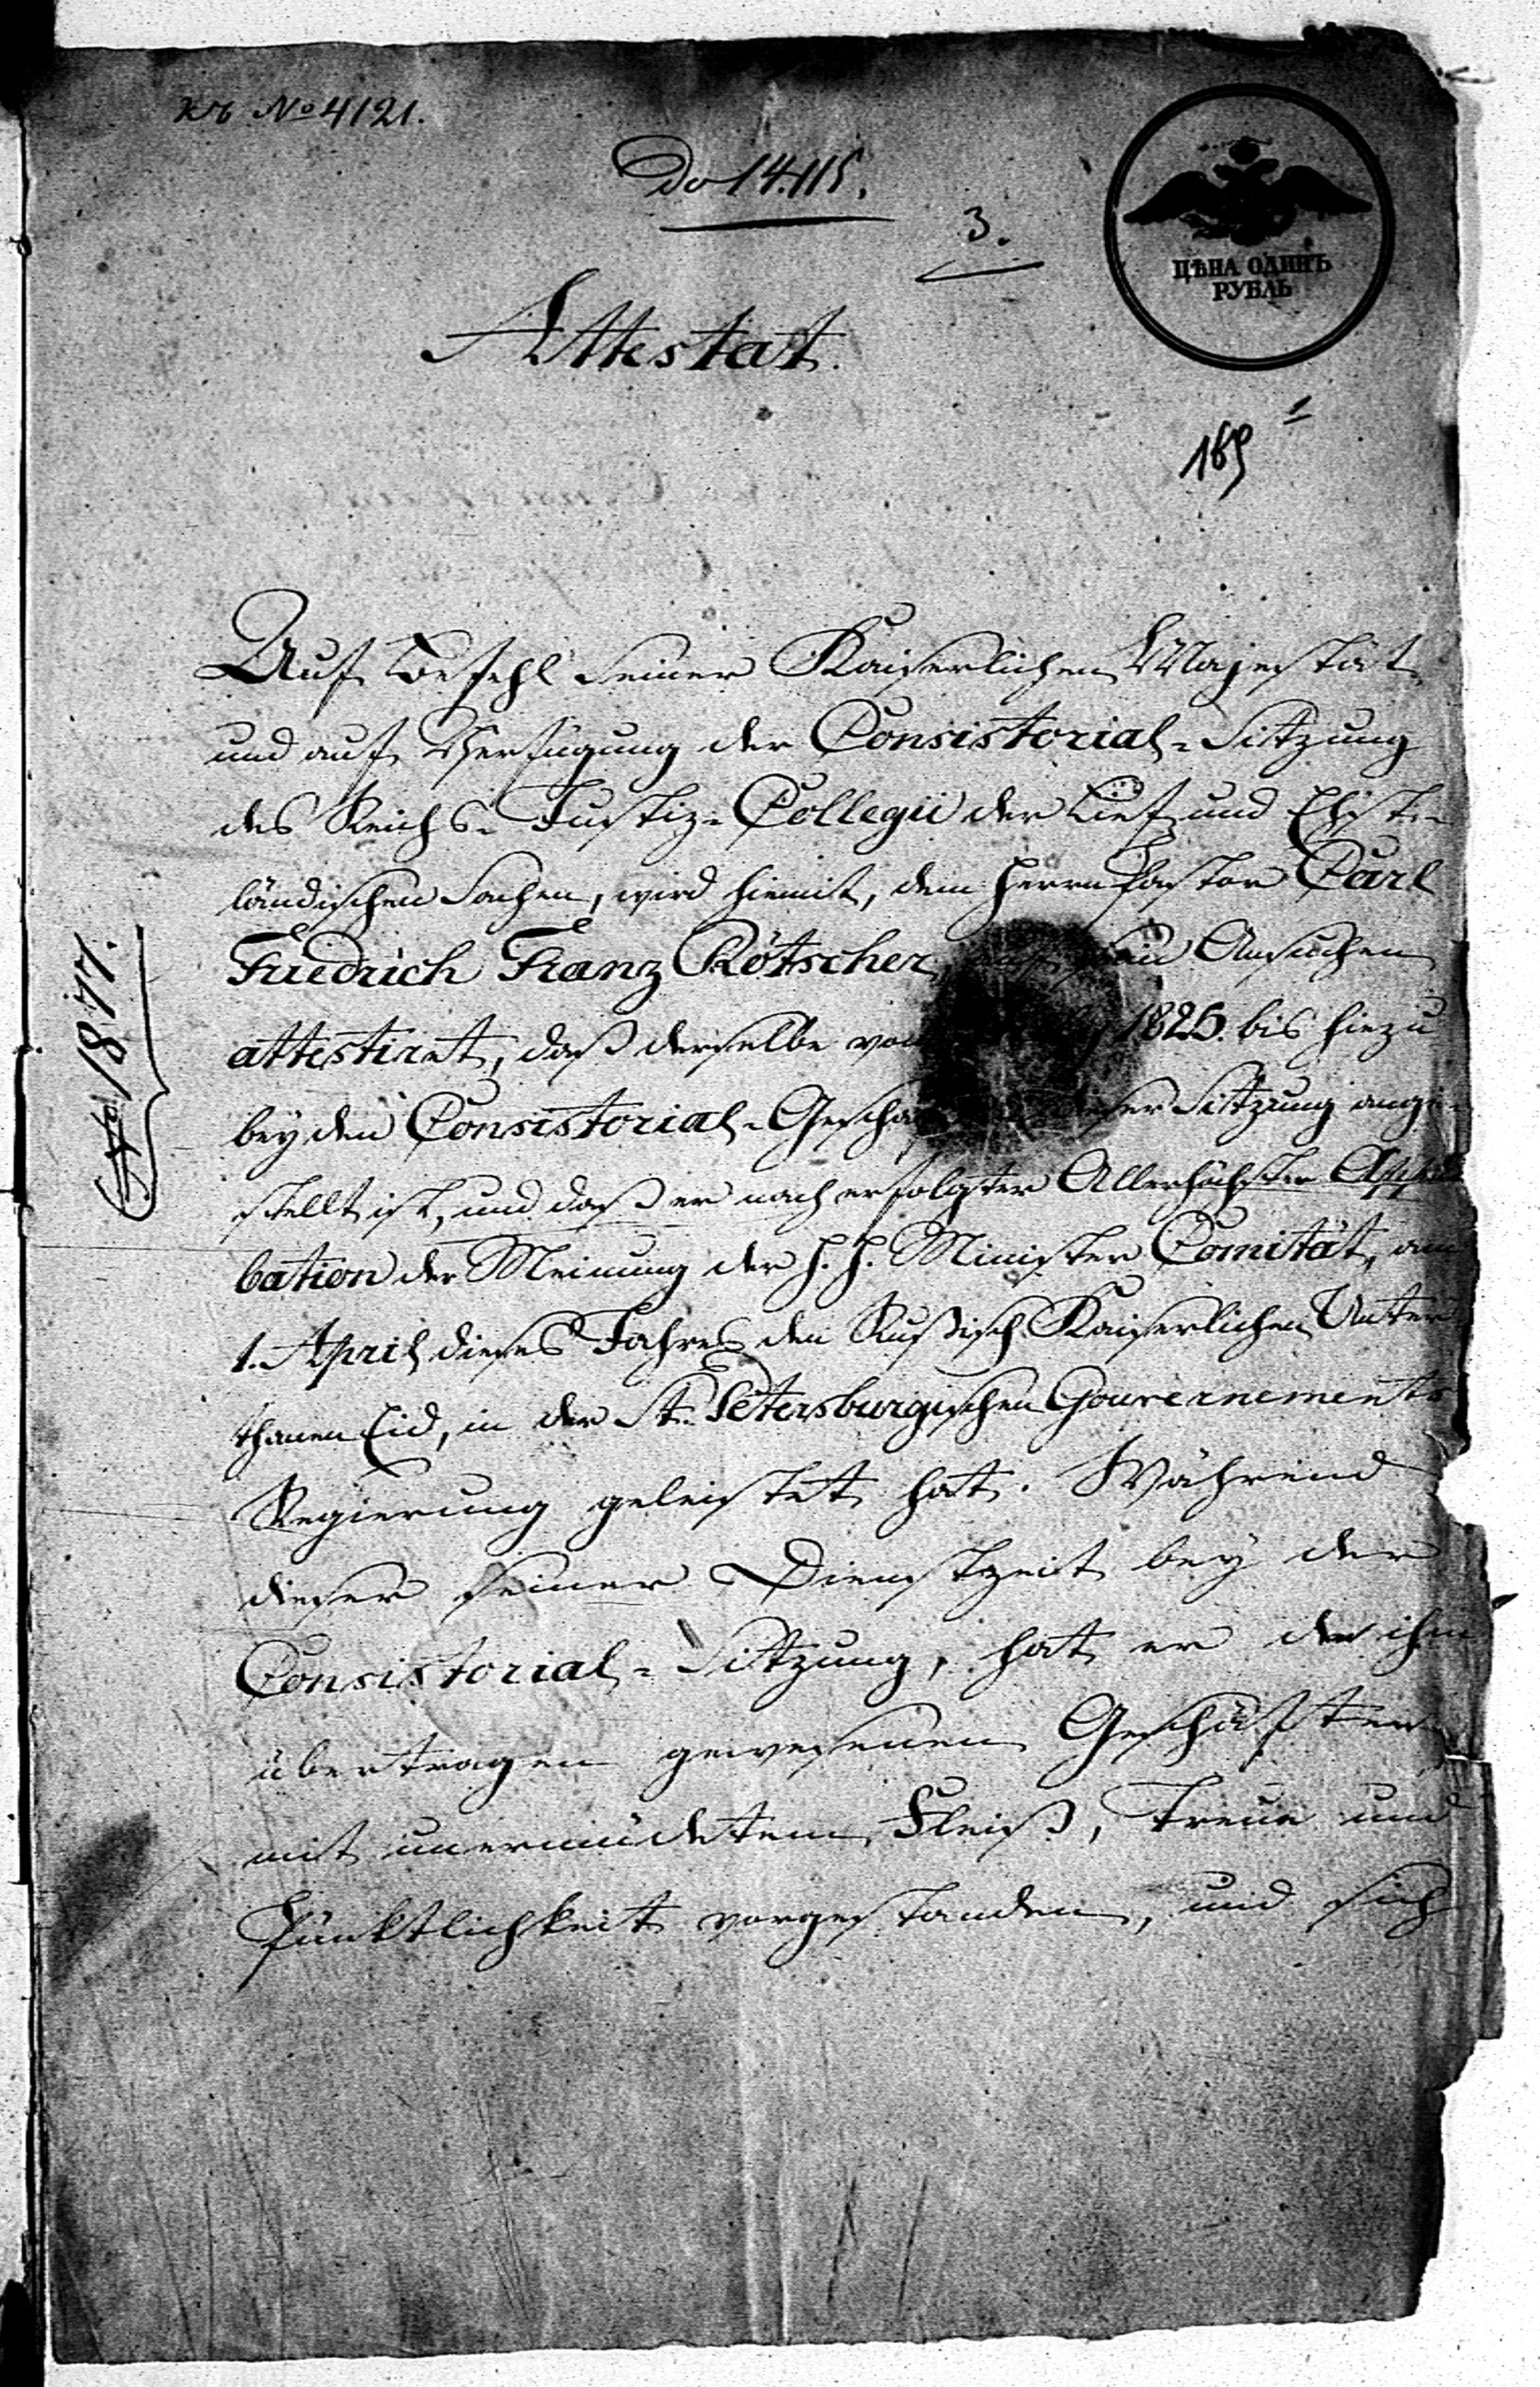 къ № 4121.
Do 14.115.
3.
ЦѢНА ОДИНЪ
РУБЛЬ
Attestat.
1
169
Auf Befehl Seiner Kaiserlichen Majestät
und auf Verfügung der Consistorial-Sitzung
des Reichs-Justiz-Collegii der Lief- und Ehst-
ländischen Sachen, wird hiemit, dem Herrn Pastor Carl
Friedrich Franz Rötscher, auf sein Ansuchen
attestiret, daß derselbe vom 1825. bis hiezu
bey den Consistorial-Geschä dieser Sitzung ange-
stellt ist, und daß er nach erfolgter Allerhöchster Appro-
bation der Meinung der H. H. Minister Comität, am
1. April dieses Jahres den Rußisch Kaiserlichen Unter-
thanen Eid, in der St. Petersburgischen Gouvernements
Regierung geleistet hat. Während
dieser seiner Dienstzeit bey der
Consistorial-Sitzung, hat er den ihm
übertragen gewesenen Geschäften
mit unermüdetem Fleiß, Treue und
Pünktlichkeit vorgestanden, und sich
No 1877.